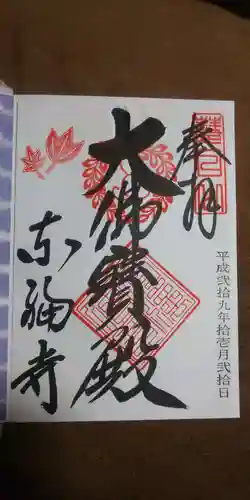 奉拝
平成弐拾九年拾壱月弐拾日
大佛寳殿
东福寺